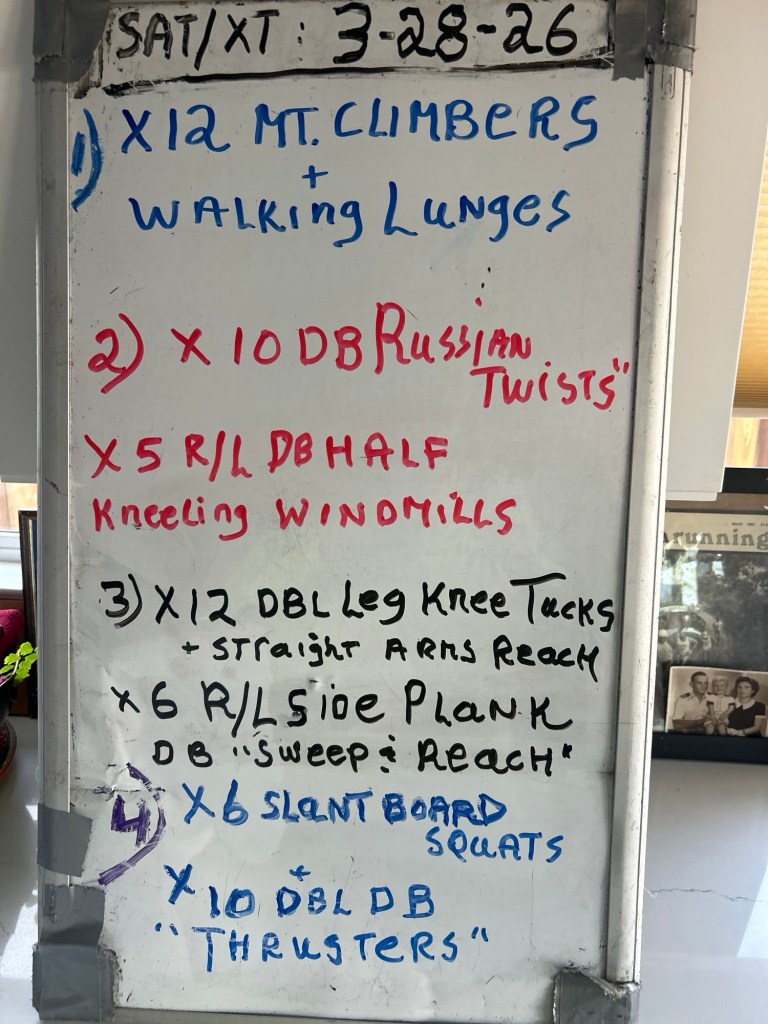 SAT/XT: 3-28-26
1) X12 MT. CLIMBERS
+
WALKing Lunges
2) X 10 DB Russian
TWISTS"
X 5 R/L DB HALF
Kneeling WINDMiLLS
3) X12 DBL Leg Knee Tucks
+ STraighT ARMS ReacH
X 6 R/L Side PLank
DB "Sweep & ReacH"
4) X6 SLanT BOARD
SQuATS
+
X 10 DBL DB
"THRusTers"
running